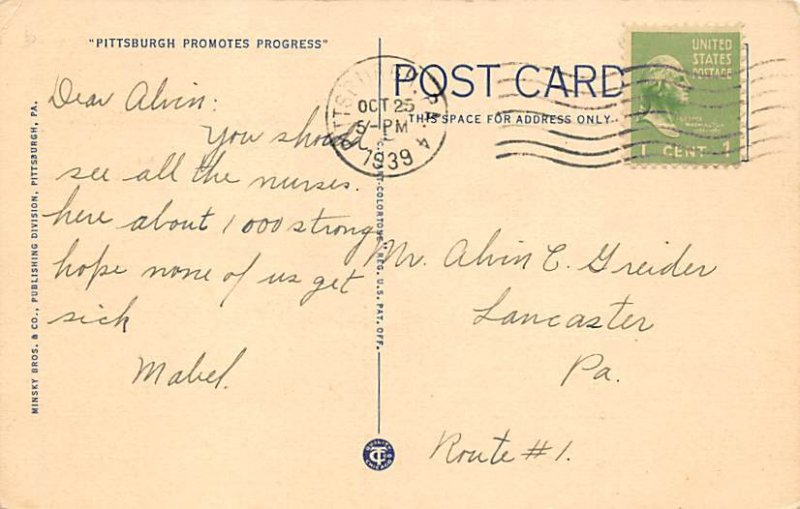 "PITTSBURGH PROMOTES PROGRESS"
Dear Alvin:
You should
see all the nurses.
here about 1000 strong
hope none of us get
sick
Mabel.
MINSKY BROS. & CO., PUBLISHING DIVISION, PITTSBURGH, PA.
REG. U.S. PAT. OFF.
POST CARD
THIS SPACE FOR ADDRESS ONLY
OCT 25
5-PM
1939
UNITED
STATES
POSTAGE
1 CENT 1
Mr. Alvin C. Greider
Lancaster
Pa.
Route #1.
CHICAGO